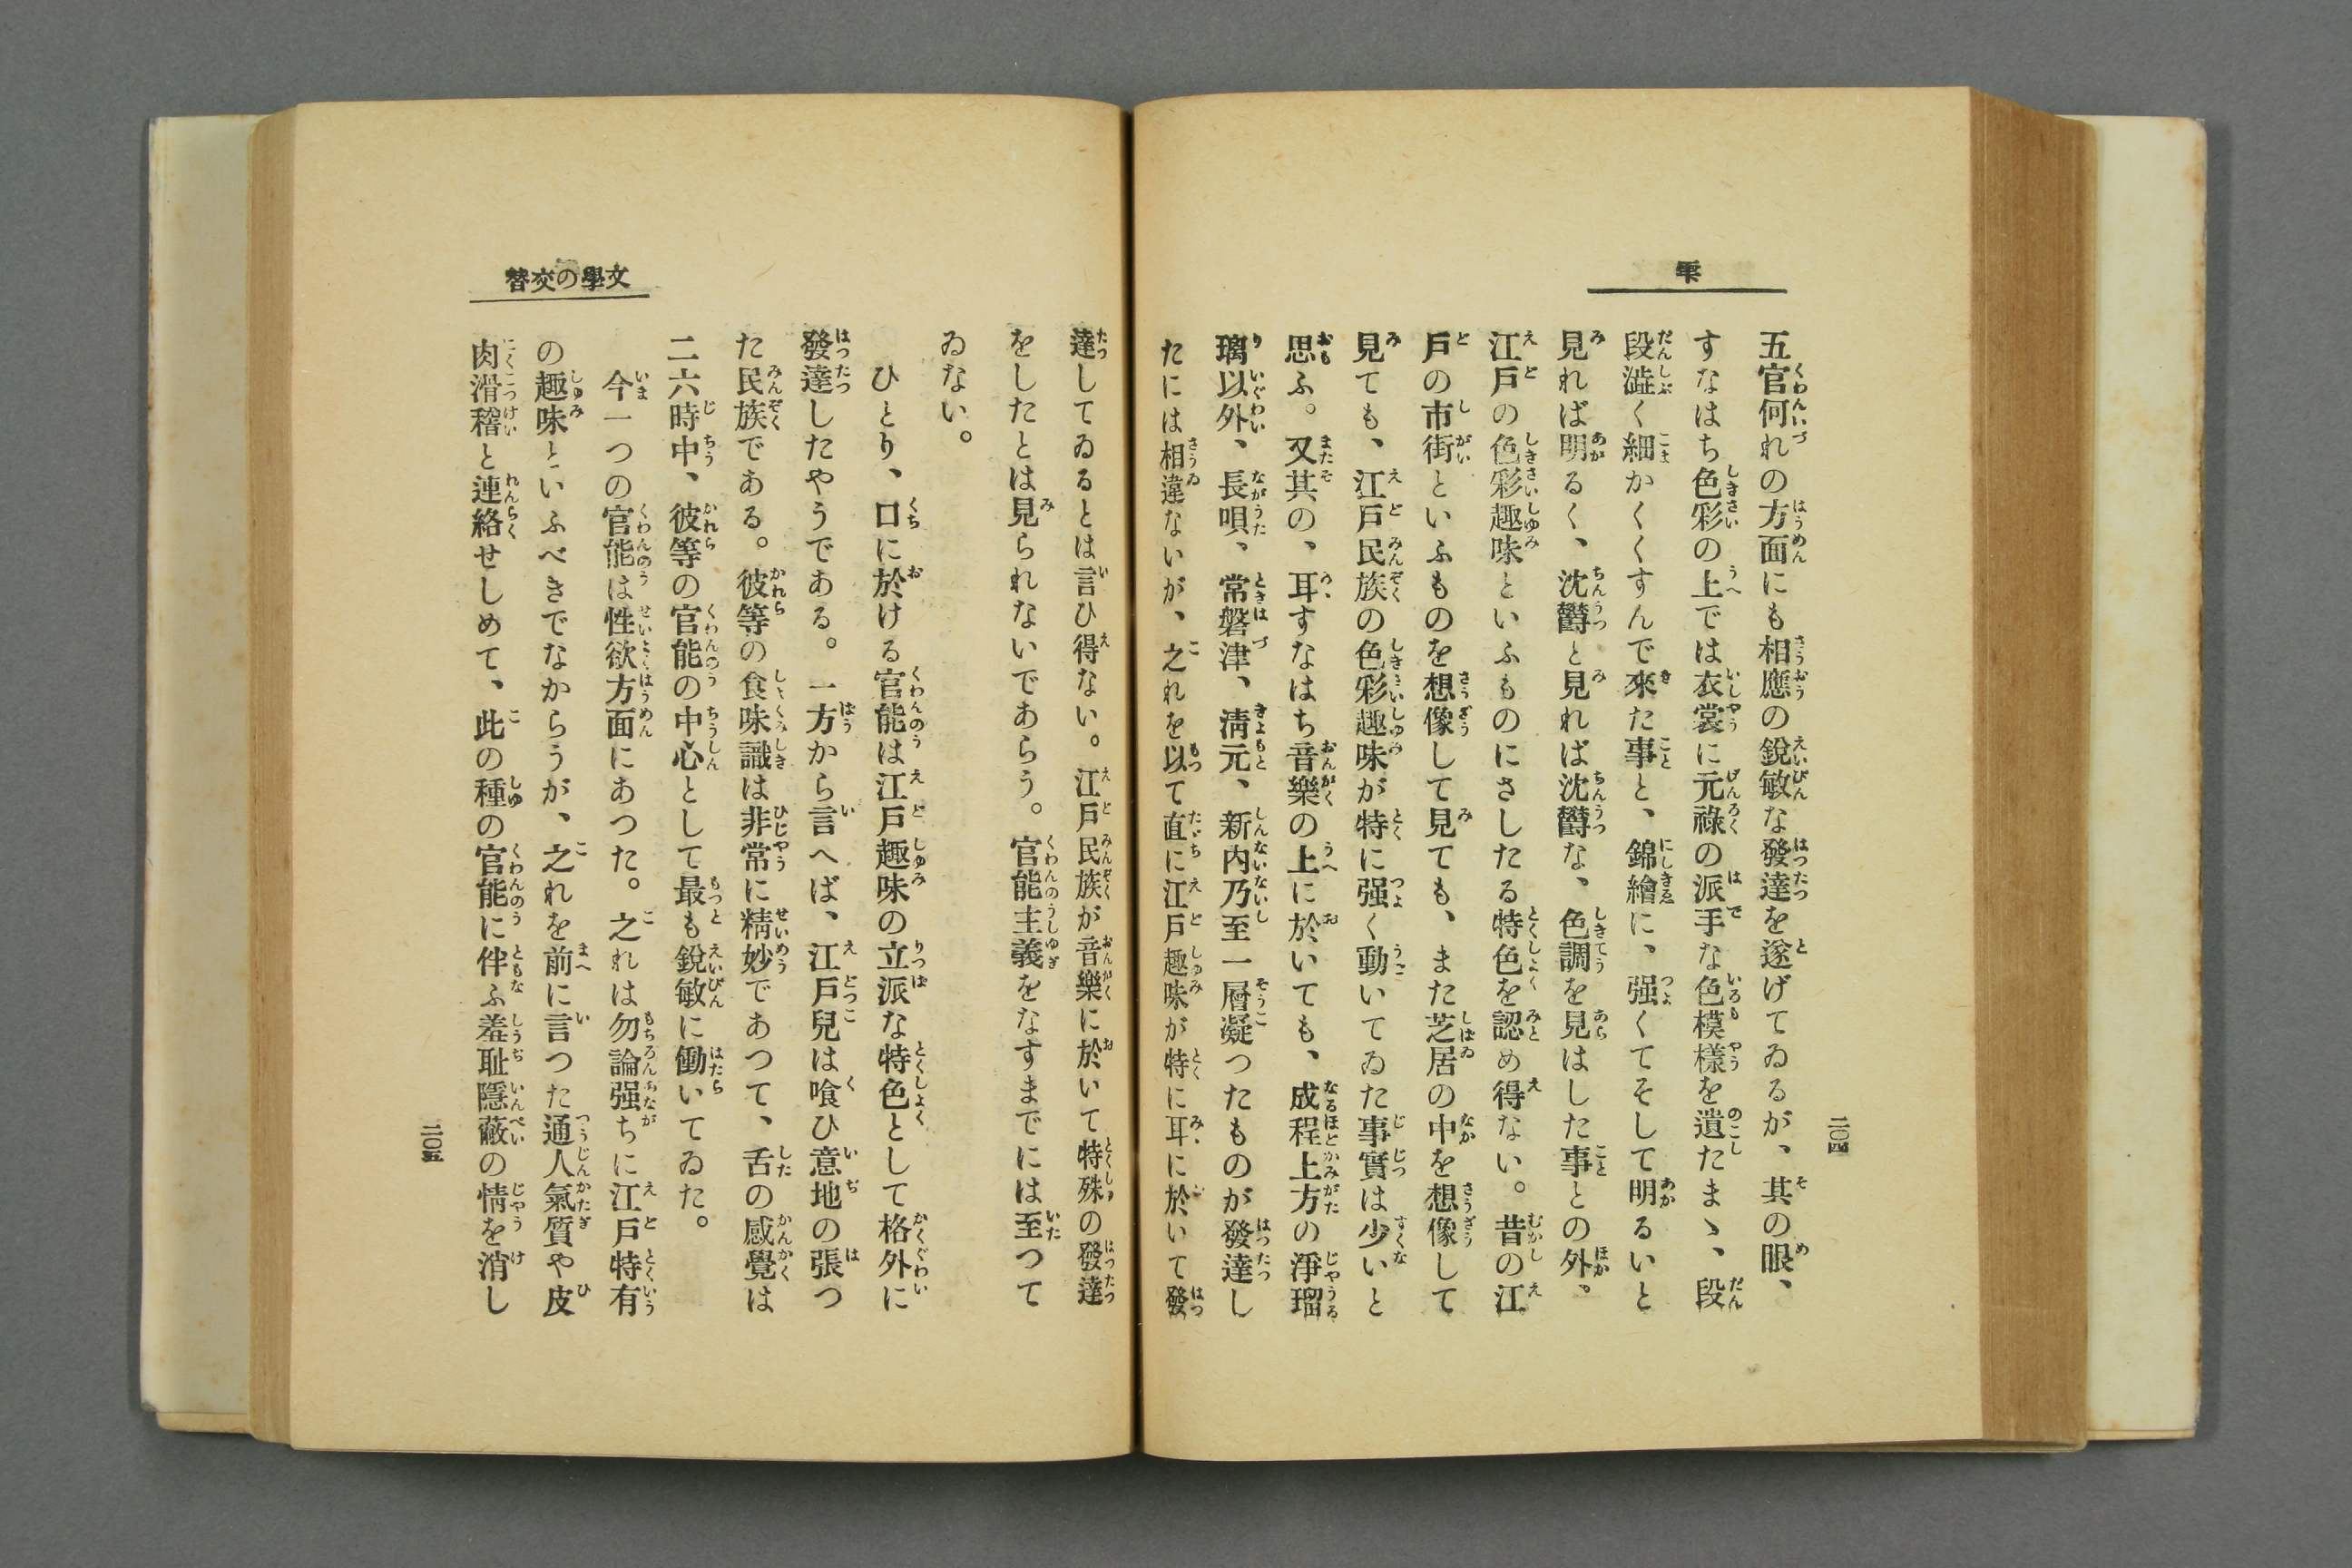 雫
五官何れの方面にも相應の銳敏な發達を遂げてゐるが、其の眼、
すなはち色彩の上では衣裳に元祿の派手な色模樣を遺たまゝ、段
段澁く細かくくすんで來た事と、錦繪に、强くてそして明るいと
見れば明るく、沈欝と見れば沈欝な、色調を見はした事との外。
江戶の色彩趣味といふものにさしたる特色を認め得ない。昔の江
戶の市街といふものを想像して見ても、また芝居の中を想像して
見ても、江戶民族の色彩趣味が特に强く動いてゐた事實は少いと
思ふ。又其の、耳すなはち音樂の上に於いても、成程上方の淨瑠
璃以外、長唄、常磐津、淸元、新內乃至一層凝つたものが發達し
たには相違ないが、之れを以て直に江戶趣味が特に耳に於いて發
二〇四
文學の交替
達してゐるとは言ひ得ない。江戶民族が音樂に於いて特殊の發達
をしたとは見られないであらう。官能主義をなすまでには至つて
ゐない。
ひとり、口に於ける官能は江戶趣味の立派な特色として格外に
發達したやうである。一方から言へば、江戶兒は喰ひ意地の張つ
た民族である。彼等の食味識は非常に精妙であつて、舌の感覺は
二六時中、彼等の官能の中心として最も銳敏に働いてゐた。
今一つの官能は性欲方面にあつた。之れは勿論强ちに江戶特有
の趣味といふべきでなからうが、之れを前に言つた通人氣質や皮
肉滑稽と連絡せしめて、此の種の官能に伴ふ羞耻隱蔽の情を消し
二〇五